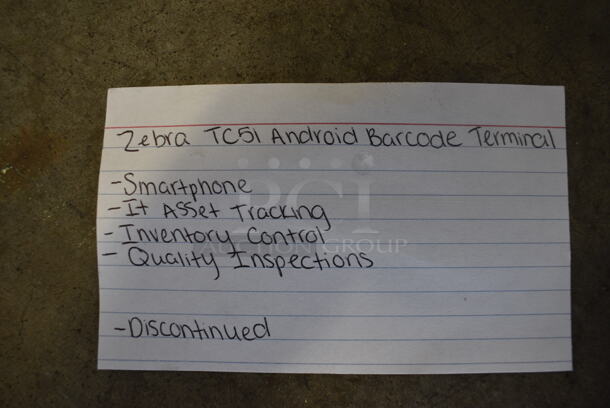 Zebra TC51 Android Barcode Terminal
-Smartphone
-It Asset Tracking
-Inventory Control
-Quality Inspections
-Discontinued
PCI
AUCTION GROUP